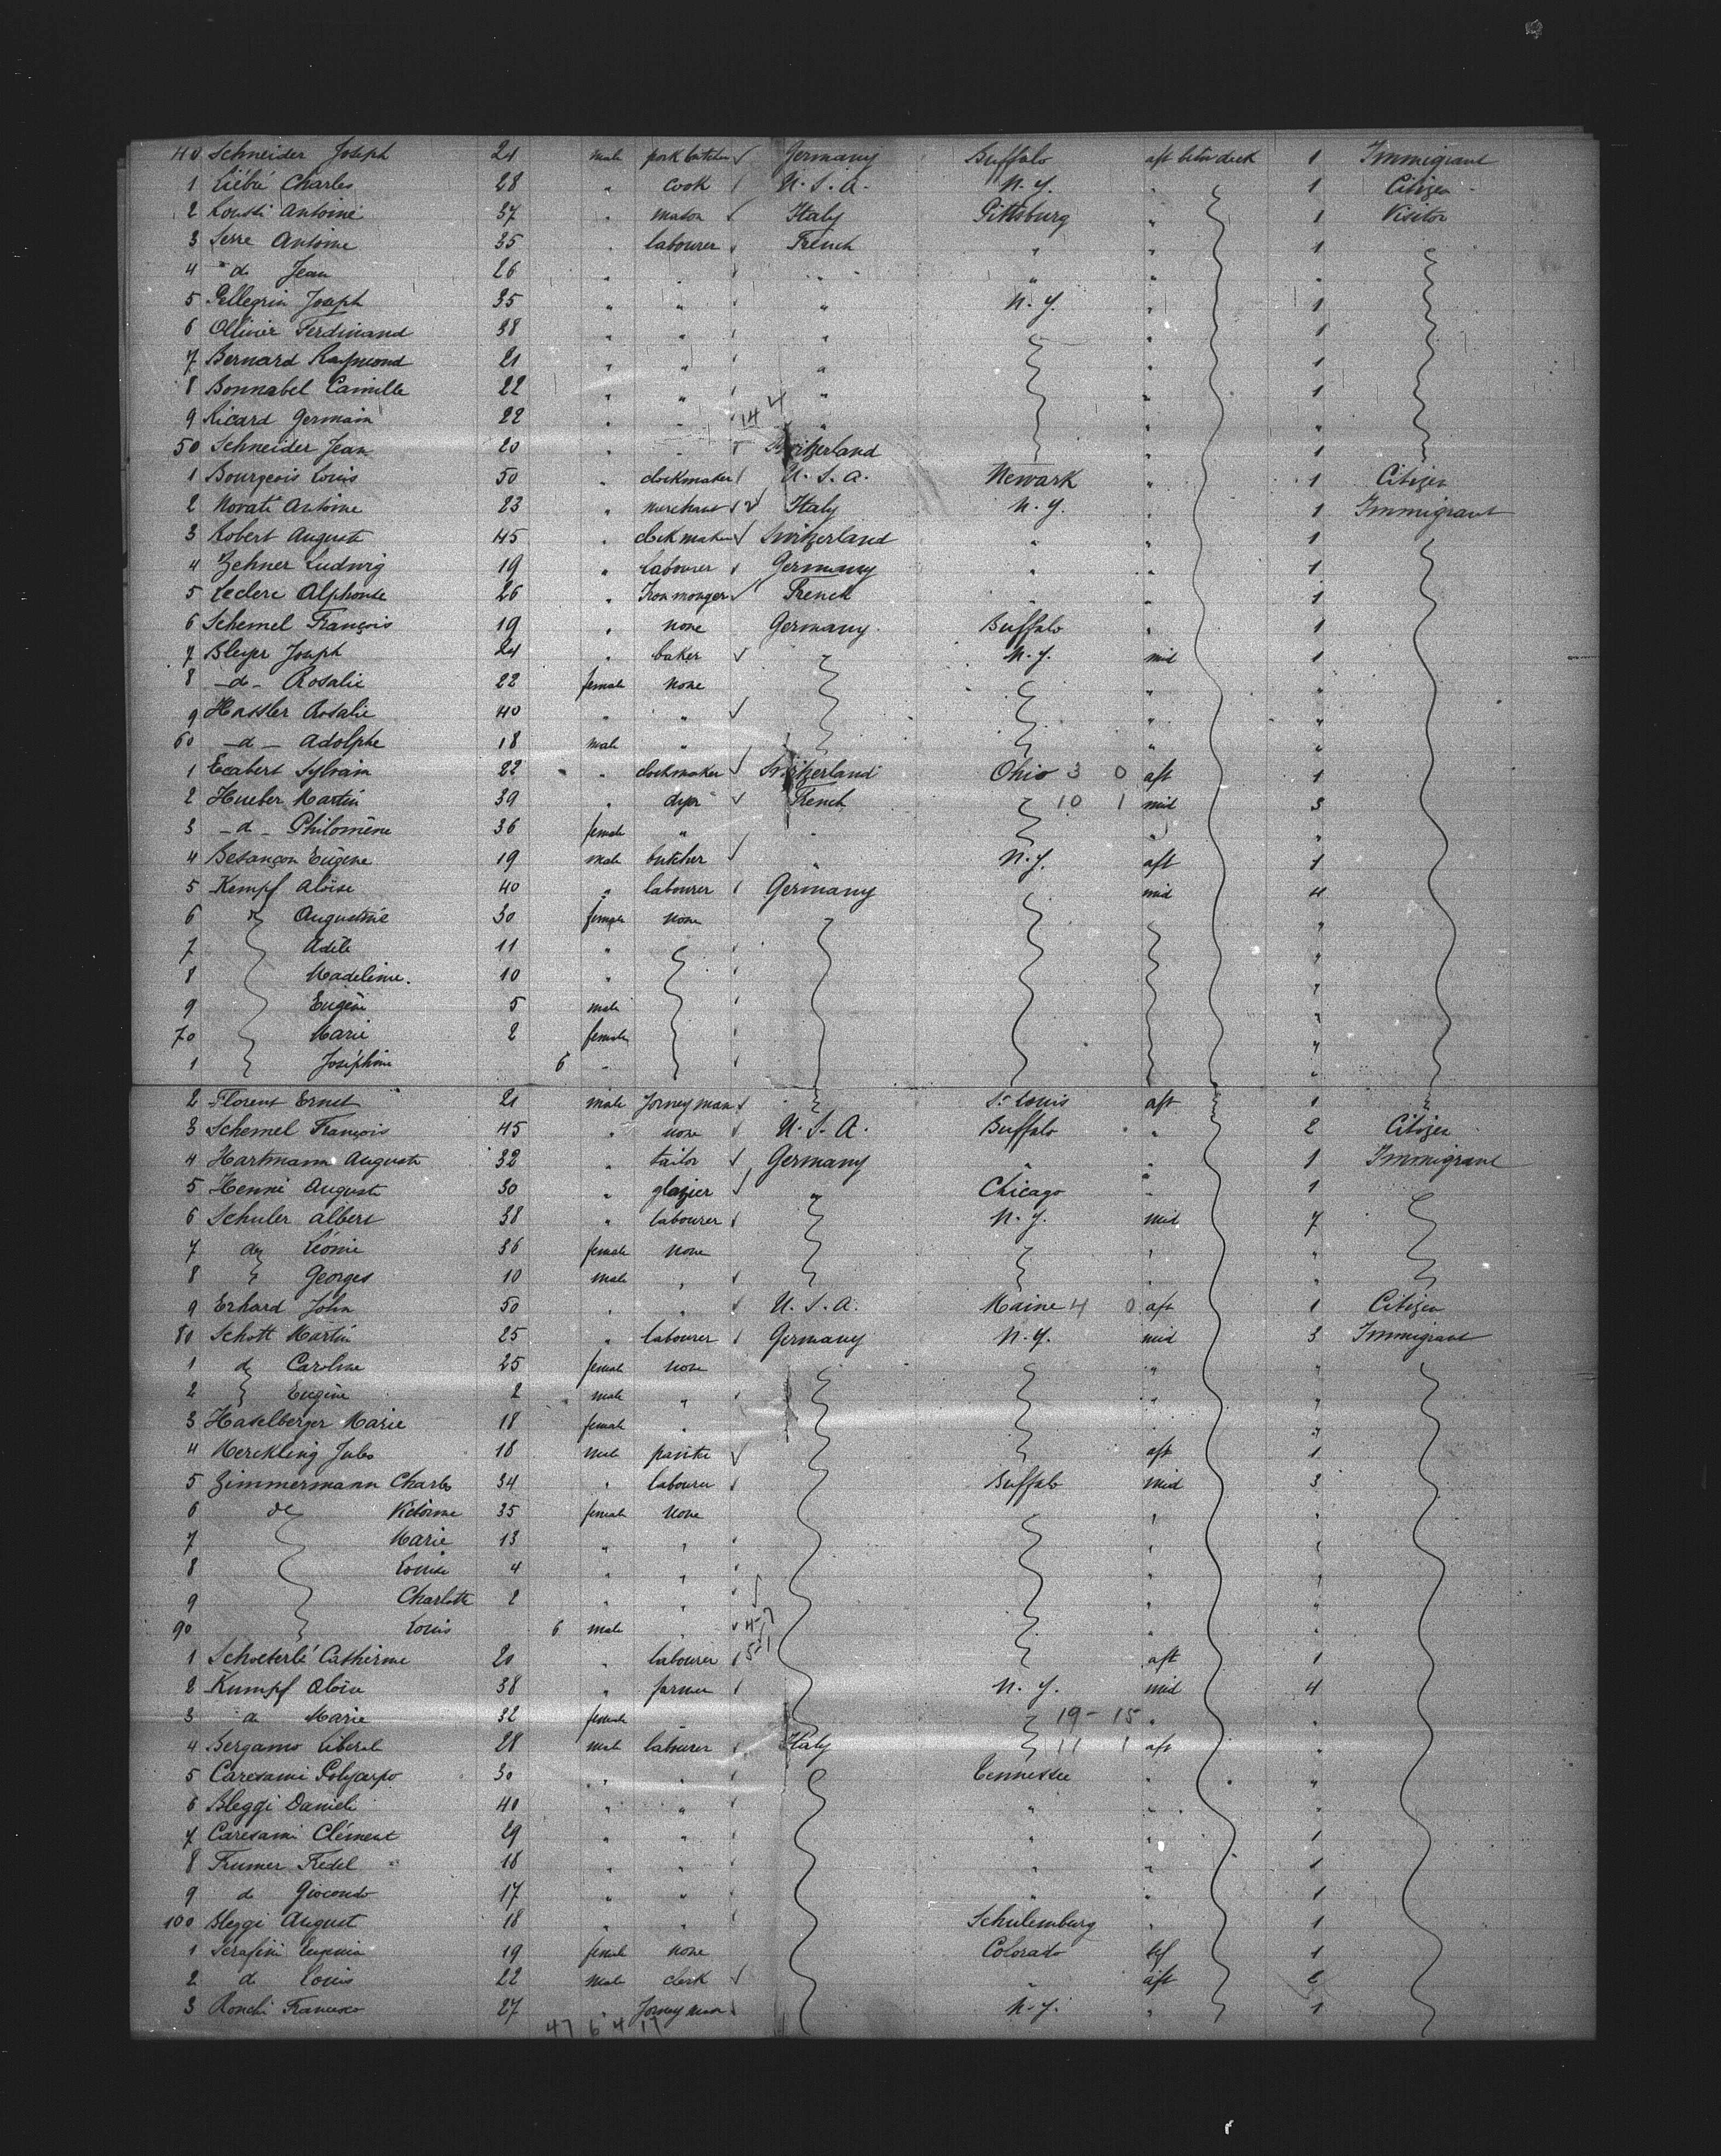 40 Schneider Joseph 21 male pork butcher Germany Buffalo aft betw deck 1 Immigrant
1 Liébié Charles 28 " cook U.S.A. N.Y. " 1 Citizen
2 Antoine 37 " mason Italy Pittsburg " 1 Visitor
3 Serre Antoine 35 " labourer French " " 1
4 " d Jean 26 " " " " "
5 Pellegrin Joseph 35 " " " N.Y. " 1
6 Ollivier Ferdinand 38 " " " " 1
7 Bernard Raymond 21 " " " " 1
8 Bonnabel Camille 22 " " " " 1
9 Ricard Germain 22 " " 14 " "
50 Schneider Jean 20 " " Switzerland " 1
1 Bourgeois Louis 50 " clockmaker U.S.A. Newark " 1 Citizen
2 Novati Antoine 23 " merchant Italy N.Y. " 1 Immigrant
3 Robert Auguste 45 " clockmaker Switzerland " " 1
4 Zehner Ludwig 19 " labourer Germany " " 1
5 Leclerc Alphonse 26 " Iron monger French " " 1
6 Schemel François 19 " none Germany Buffalo " 1
7 Joseph 24 " baker N.Y. mid 1
8 -d- Rosalie 22 female none " "
9 Hassler Rosalie 40 " " " "
60 -d- Adolphe 18 male " " "
1 Ecabert Sylvain 22 " clockmaker Switzerland Ohio 3 0 aft 1
2 Hueber Martin 39 " dyer French 10 1 mid 3
3 -d- Philomène 36 female " " " "
4 Besançon Eugène 19 male butcher " N.Y. aft 1
5 Kempf Aloïse 40 " labourer Germany mid 4
6 d Augustine 30 female none "
7 Adèle 11 " "
8 Madeleine. 10 " "
9 Eugène 5 male "
70 Marie 2 female "
1 Joséphine 6 " "
2 Florent Ernest 21 male Jorneyman St Louis aft 1
3 Schemel François 45 " none U.S.A. Buffalo " 2 Citizen
4 Hartmann Auguste 32 " tailor Germany " " 1 Immigrant
5 Henné Auguste 30 " glazier " Chicago " 1
6 Schuler Albert 38 " labourer N.Y. mid 7
7 d Léonie 36 female none " "
8 Georges 10 male " " "
9 Erhard John 50 " " U.S.A. Maine 4 0 aft 1 Citizen
80 Schott Martin 25 " labourer Germany N.Y. mid 3 Immigrant
1 d Caroline 25 female none " "
2 Eugène 2 male " " "
3 Haselberger Marie 18 female " " "
4 Merckling Jules 18 male aft 1
5 Zimmermann Charles 34 " labourer Buffalo mid 3
6 d Victorine 35 female none " "
7 Marie 13 " " " "
8 Louise 4 " " " "
9 Charlotte 2 " " " "
90 Louis 6 male " " "
1 Catherine 20 " labourer aft 1
2 Kumpf Aloïse 38 " farmer N.Y. mid 4
3 d Marie 32 female 19-15 " "
4 Bergamo Liberal 28 male labourer Italy 11 1 aft "
5 Caresani Polycarpo 30 " " Tennessee " "
6 Bleggi Daniele 40 " " " " "
7 Caresani Clément 29 " " " " 1
8 Frumer Fedel 18 " " " " 1
9 d Giocondo 17 " " " " 1
100 Bleggi August 18 " " Schulemburg " 1
1 Serafini Eugenia 19 female none Colorado bef 1
2 d Louis 22 male clerk " aft 2
3 Ronchi Francesco 27 " Jorneyman N.Y. " 1
47 6 4 17